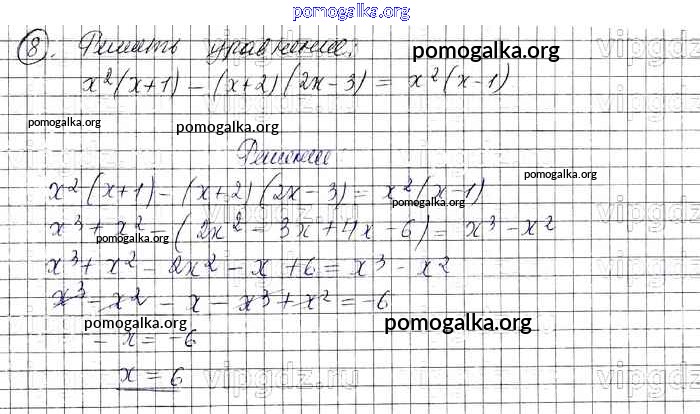 pomogalka.org
8. Решить уравнение:
pomogalka.org
x²(x+1) - (x+2)(2x-3) = x²(x-1)
pomogalka.org
pomogalka.org
Решение
pomogalka.org
x²(x+1) - (x+2)(2x-3) = x²(x-1)
pomogalka.org
x³ + x² - (2x² - 3x + 4x - 6) = x³ - x²
pomogalka.org
x³ + x² - 2x² - x + 6 = x³ - x²
x³ - x² - x - x³ + x² = -6
pomogalka.org
pomogalka.org
- x = -6
x = 6
vipgdz.ru